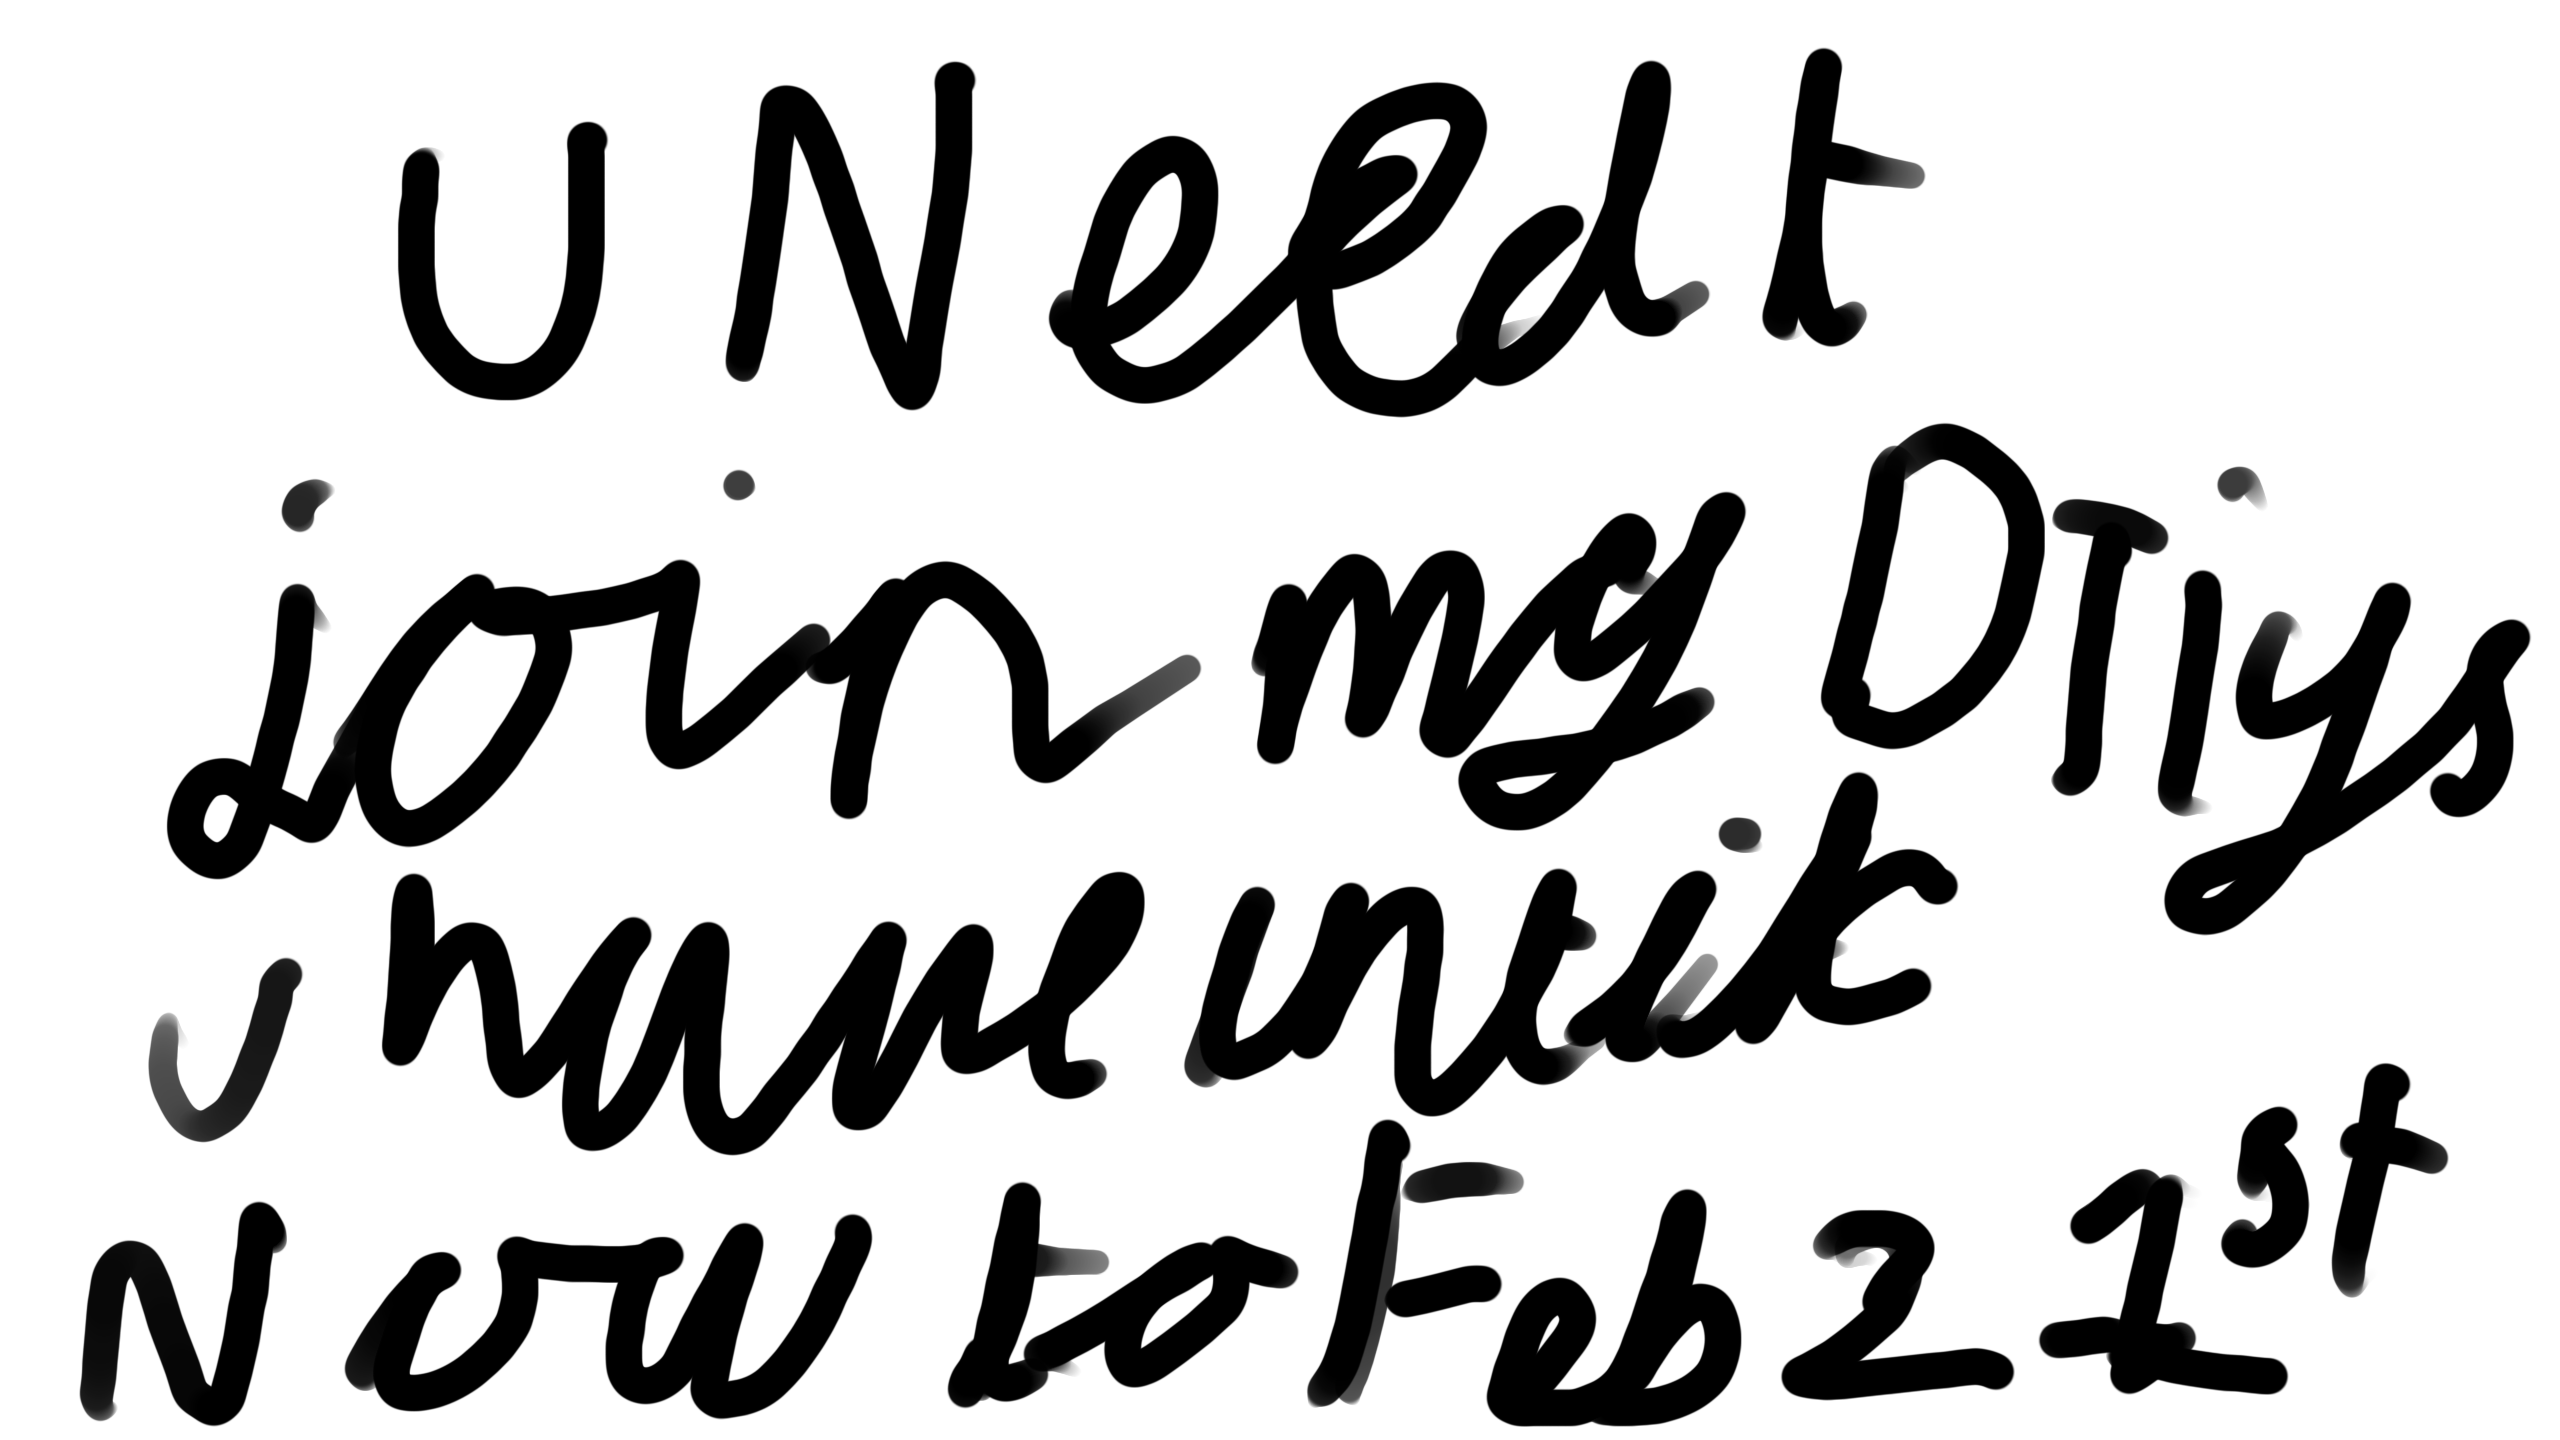 U Need t
join my DTiys
u have untik
Now to Feb 21st